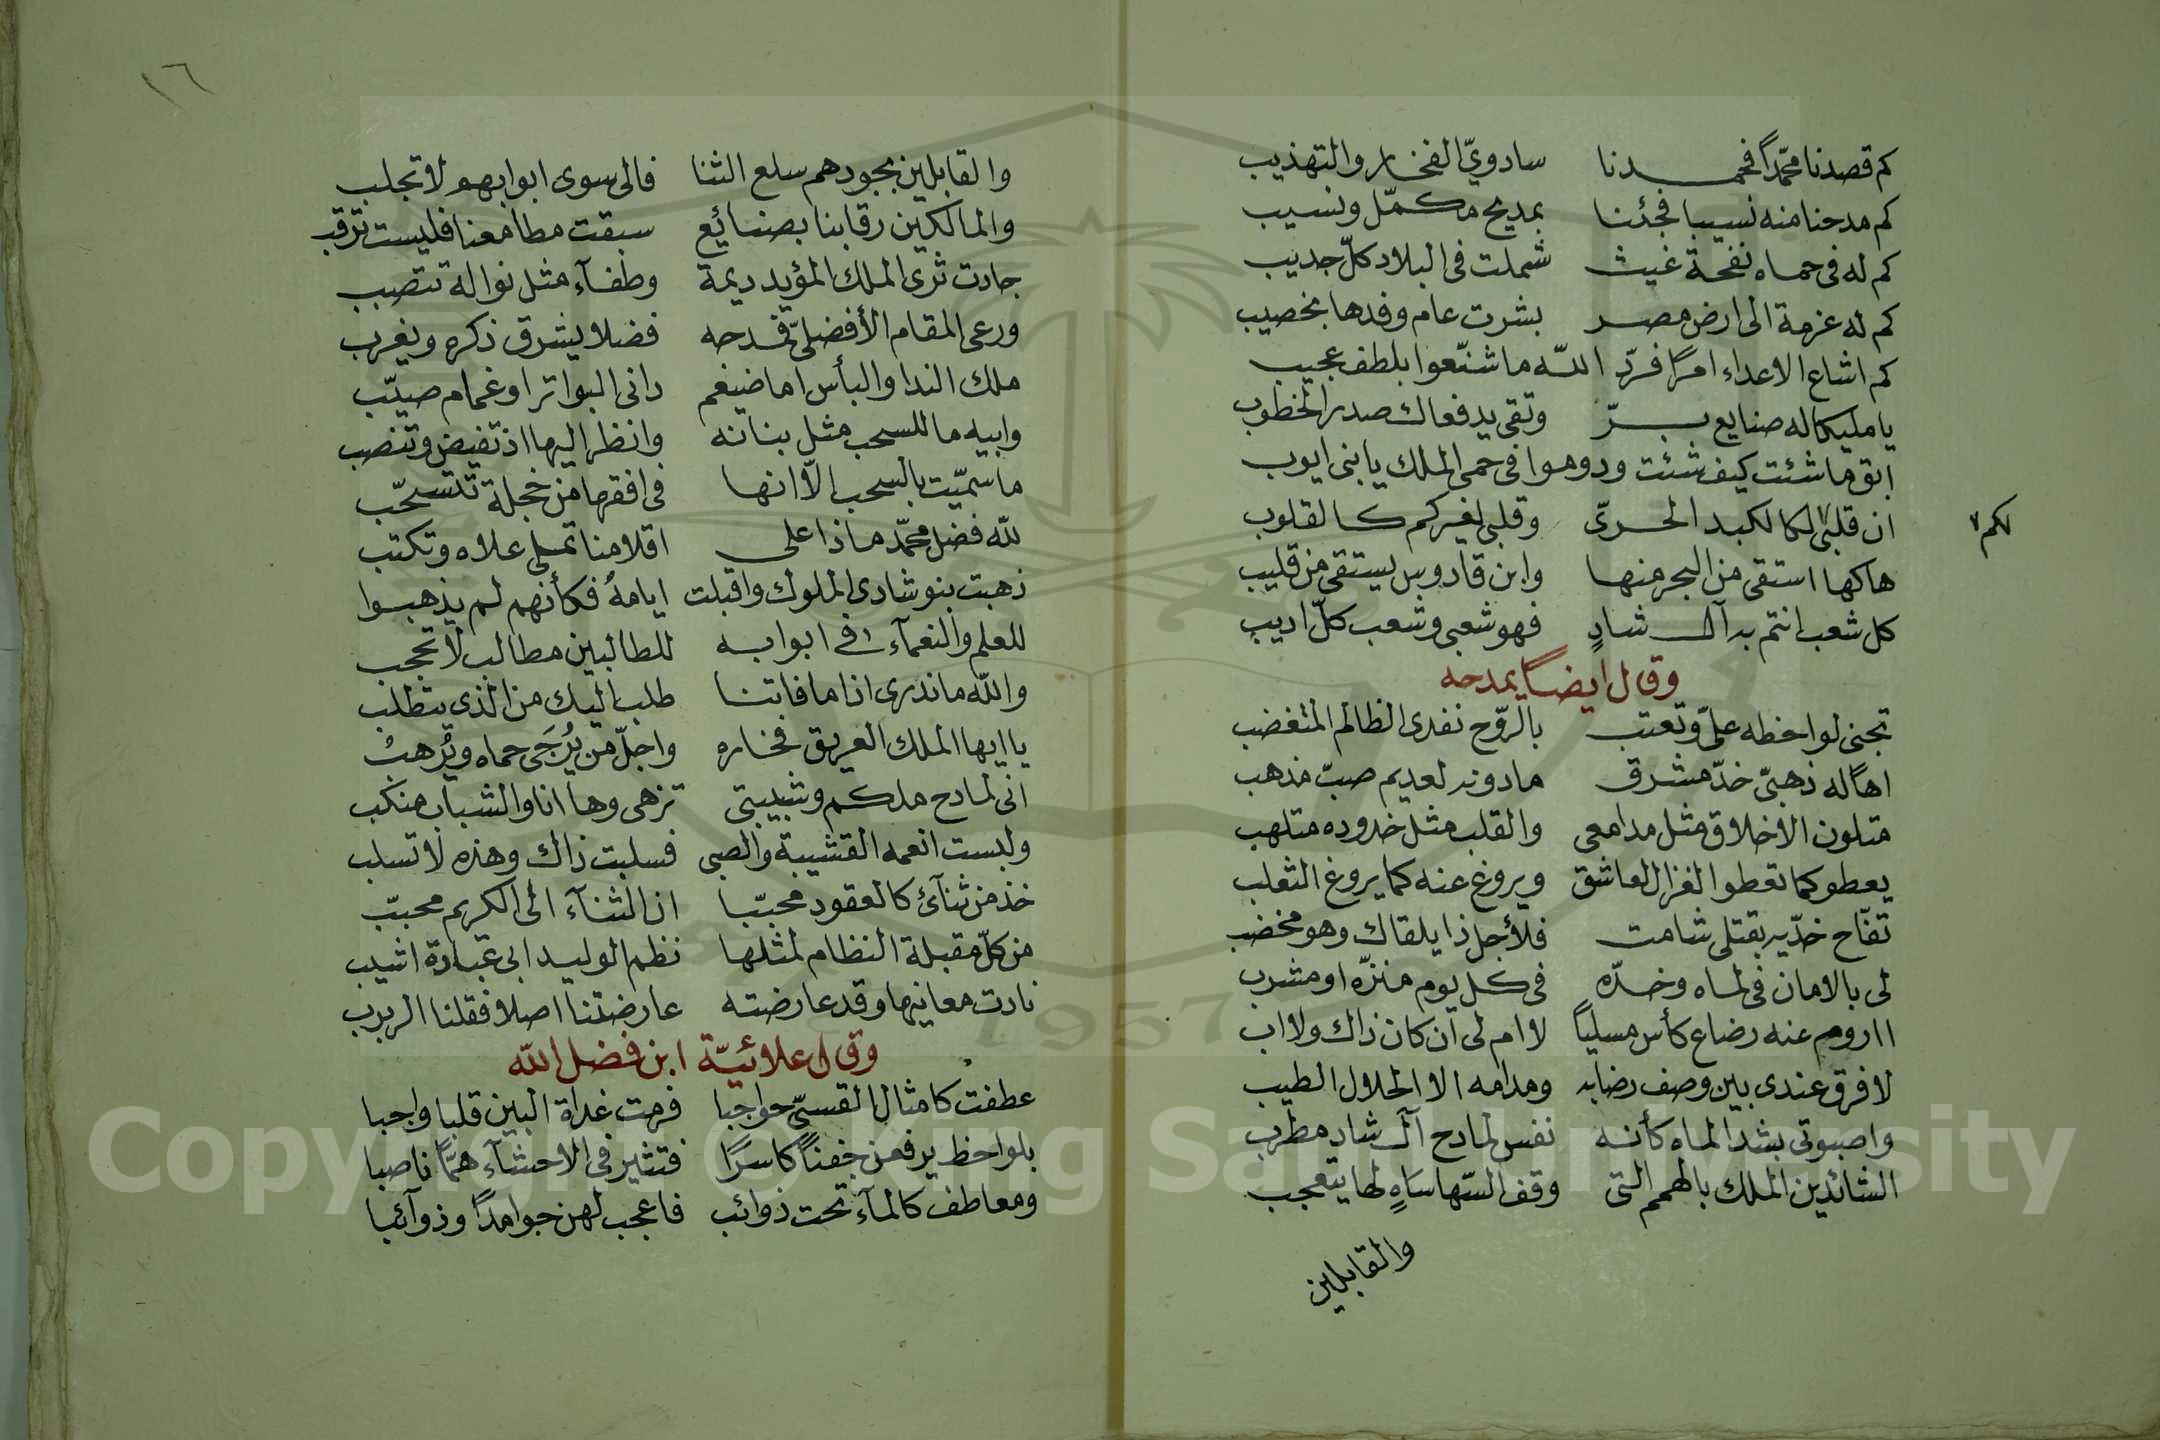 كم قصدنا محمّداً فحمدنا سادويّ الفخار والتهذيب
كم مدحنا منه نسيبا فجئنا بمديح مكمّل ونسيب
كم له فى حماه نفحة غيث شملت فى البلاد كلّ جديب
كم له عزمة الى ارض مصر بشرت عام وفدها بخصيب
كم اشاع الاعداء امرًا فردّ اللّه ما شنّعوا بلطف عجيب
يا مليكا له صنايع برّ وتقى يدفعان صدر الخطوب
ابق ما شئت كيف شئت ودوموا فى حمى الملك يا بنى ايوب
ان قلبى لكم كالكبد الحرّى وقلبى لغيركم كالقلوب
لكم
هاكها استقى من البحر منها وابن قادوس يستقى من قليب
كل شعب انتم به آل شادٍ فهو شعبى وشعب كلّ اديب
وقال ايضاً يمدحه
تجنى لواحظه علىّ وتعتب بالرّوح نفدى الظالم المتغضب
اهًا له ذهبىّ خدّ مشرق ما دونه لعديم صبّ مذهب
متلون الاخلاق مثل مدامعى والقلب مثل خدوده متلهب
يعطو كما تعطوا الغزال لعاشق ويروغ عنه كما يروغ الثعلب
تفّاح خدّيه بقتلى شامت فلأجل ذا يلقاك وهو مخضب
لى بالامان فى لماه وخدّه فى كل يوم منزّه او مشرب
ااروم عنه رضاع كأس مسلياً لا ام لى ان كان ذاك ولا اب
لا فرق عندى بين وصف رضابه ومدامه الا الحلال الطيب
واصبوتى بشدا لماه كأنه نفس لمادح آل شاد مطرب
الشائدين الملك بالهمم التى وقف السّها ساهٍ لها يتعجب
والقابلين
١٦
والقابلين بجودهم سلع الثنا فالى سوى ابوابهم لا تجلب
والمالكين رقابنا بصنائع سبقت مطامعنا فليست ترقب
جادت ثرى الملك المؤيد ديمة وطفآء مثل نواله تتصبب
ورعى المقام الأفضلىّ بمدحه فضلا يشرق ذكره ويغرب
ملك الندا والبأس اما ضيغم دانى البواتر او غمام صيّب
وابيه ما للسحب مثل بنانه وانظر اليها اذ تفيض وتنضب
ما سمّيت بالسحب الّا انها فى افقها من خجلة تتسحّب
للّه فضل محمّد ماذا على اقلامنا تملى علاه وتكتب
ذهبت بنو شادى الملوك واقبلت ايامهُ فكأنهم لم يذهبوا
للعلم والنعمآء فى ابوابه للطالبين مطالب لا تحجب
واللّه ما ندرى اذا ما فاتنا طلب اليك من الذى يتطلب
يا ايها الملك العريق فخاره واجلّ من يُرجَى حماه ويُرهبُ
انى لمادح ملكم وشبيبتى تزهى وها انا والشباب منكب
ولبست انعمه القشيبة والصبى فسلبت ذاك وهذه لا تسلب
خذ من ثنآئ كالعقود محببّا ان الثنآء الى الكريم محببّ
من كلّ مقبلة النظام لمثلها نظم الوليد ابى عبادة اشيب
نادت معانيها وقد عارضته عارضتنا اصلا فقلنا الربرب
وقال علائيّة ابن فضل اللّه
عطفت كامثال القسىّ حواجبا فرمت غداة البين قلبا واجبا
بلواحظ يرفعن جفناً كاسرًا فتثير فى الاحشآء همًّا ناصبا
ومعاطف كالمآء تحت ذوائب فاعجب لهن جوامدًا وذوآئبا